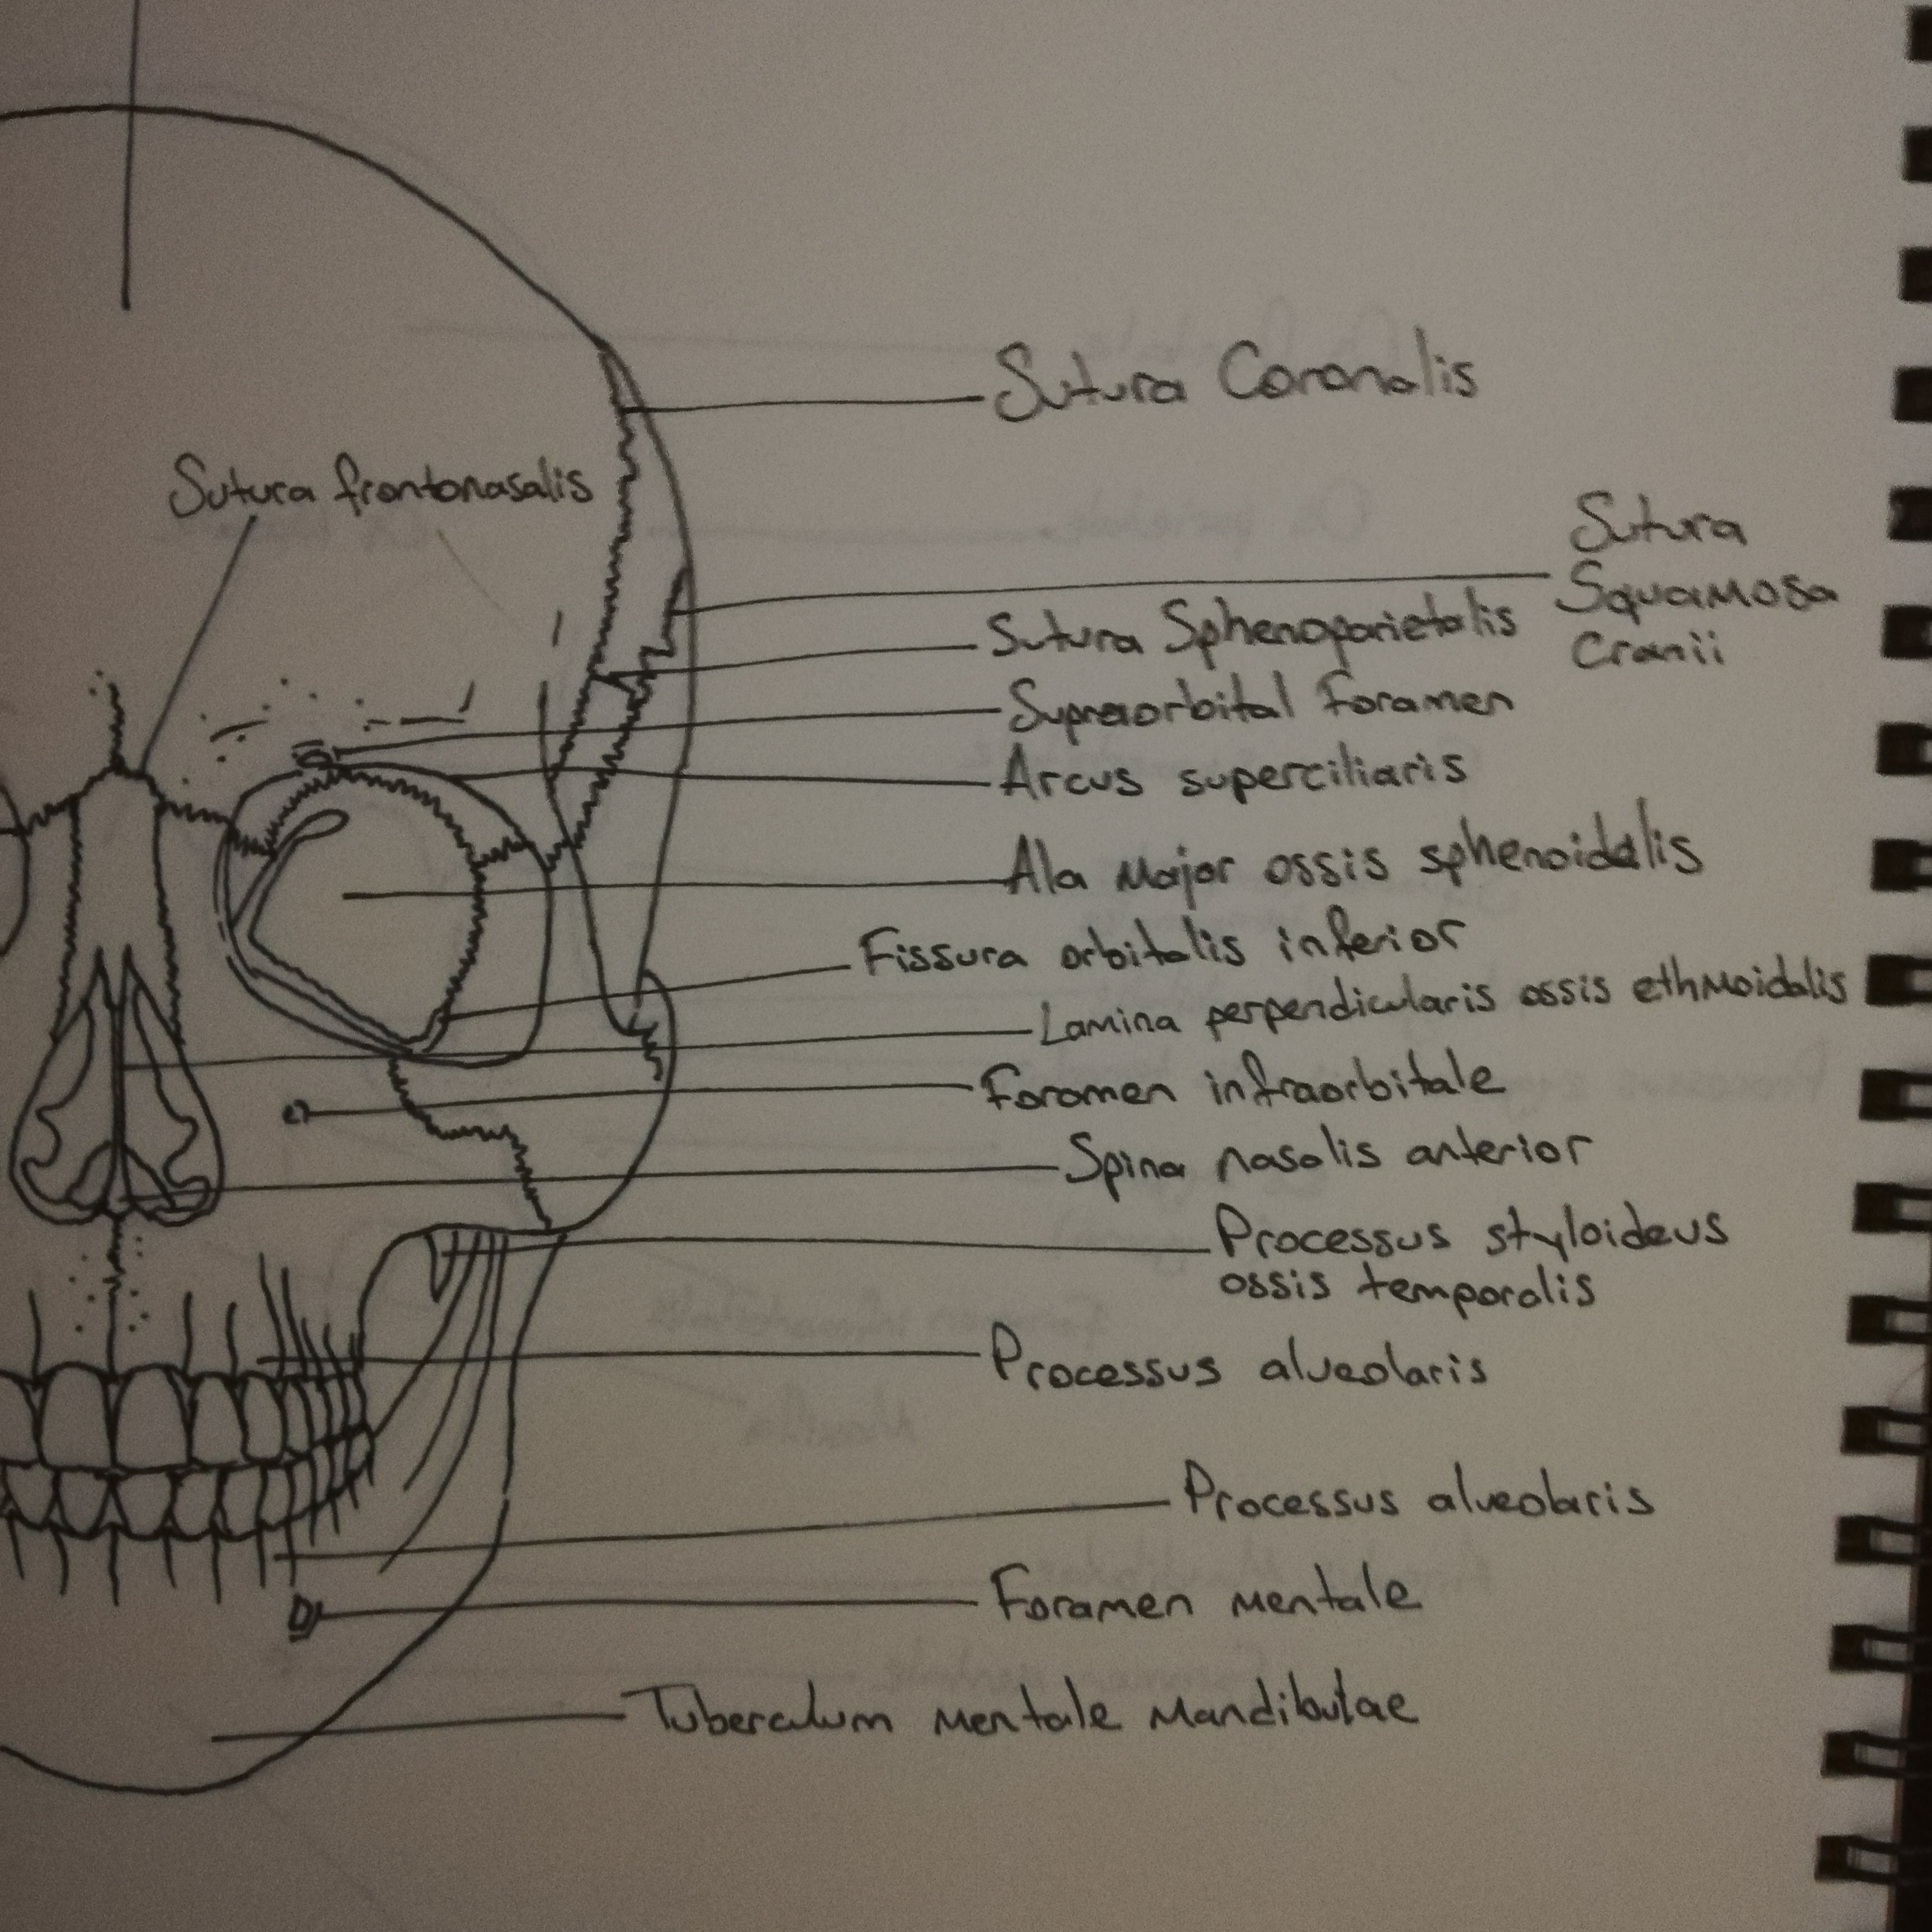 Sutura Coronalis
Sutura frontonasalis
Sutura
Squamosa
Cranii
Sutura Sphenoparietalis
Supraorbital Foramen
Arcus superciliaris
Ala Major ossis sphenoidalis
Fissura orbitalis inferior
Lamina perpendicularis ossis ethmoidalis
Foramen infraorbitale
Spina nasalis anterior
Processus styloideus
ossis temporalis
Processus alveolaris
Processus alveolaris
Foramen mentale
Tuberculum mentale Mandibulae